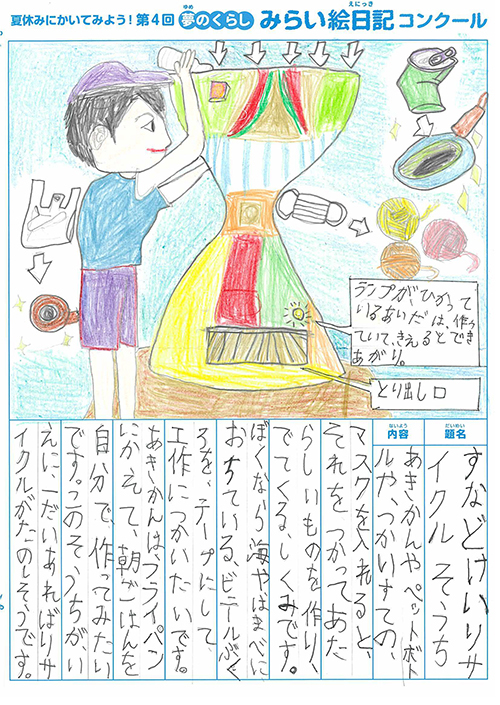 夏休みにかいてみよう!第4回 夢のくらし みらい絵日記コンクール
ゆめ
えにっき
ランプが、ひかって
いるあいだは、作っ
ていて、きえるとでき
あがり。
とり出し口
だいめい
題名
すなどけいリサ
イクル そうち
ないよう
内容
あきかんやペットボト
ルや、つかいすての、
マスクを入れると、
それをつかってあた
らしいものを作り、
でてくる、しくみです。
ぼくなら海やはまべに
おちている、ビニールぶく
ろを、テープにして、
工作につかいたいです。
あきかんは、フライパン
にかえて、朝ごはんを
自分で、作ってみたい
です。このそうちがい
えに、一だいあればリサ
イクルがたのしそうです。